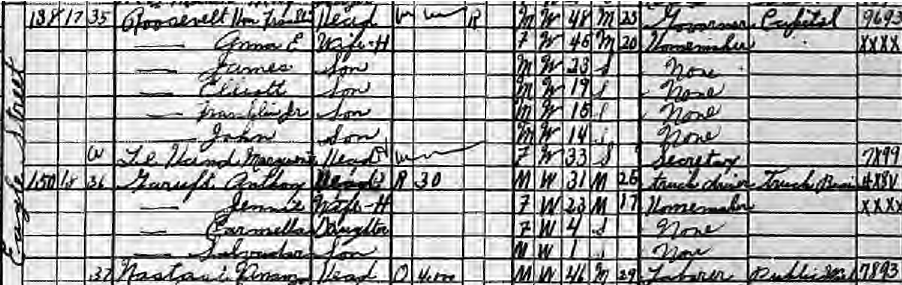 138 17 35 Roosevelt Hon Franklin Head R M W 48 M 23 Governor Capitol 9693
— Anna E Wife-H F W 45 M 20 Homemaker XXXX
— James Son M W 23 S None
— Elliott Son M W 19 S None
— Franklin Jr Son M W 15 S None
— John Son M W 14 S None
Le Hand Marguerite Head F W 33 S Secretary 7899
150 18 36 Anthony Head R 30 M W 31 M 25 truck driver Truck
— Jennie Wife-H F W 23 M 17 Homemaker XXXX
— Carmella Daughter F W 4 S None
— Salvador Son M W 1 S None
37 Head O M W 46 M 29 Laborer Public 7893
Eagle Street